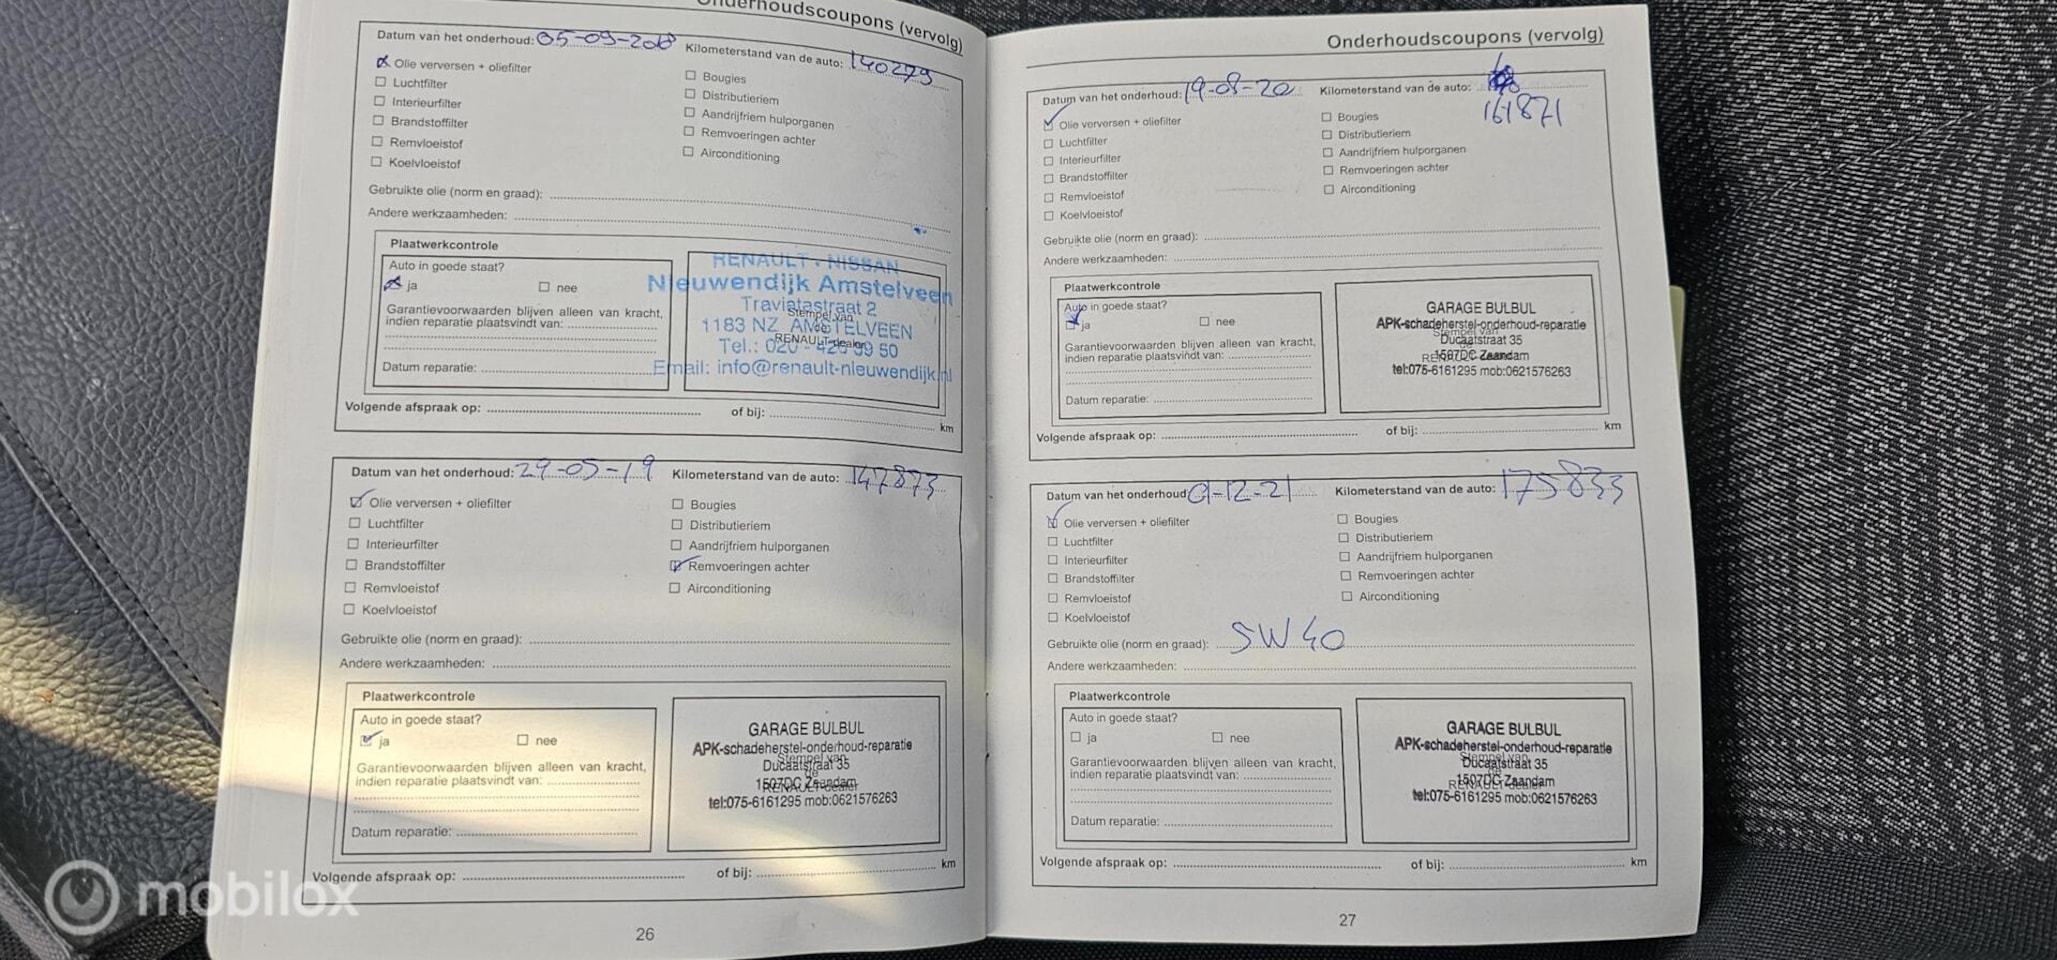 Onderhoudscoupons (vervolg)
Datum van het onderhoud: 05-09-2018 Kilometerstand van de auto: 140279
Olie verversen + oliefilter
Luchtfilter
Interieurfilter
Brandstoffilter
Remvloeistof
Koelvloeistof
Bougies
Distributieriem
Aandrijfriem hulporganen
Remvoeringen achter
Airconditioning
Gebruikte olie (norm en graad):
Andere werkzaamheden:
Plaatwerkcontrole
Auto in goede staat?
ja nee
Garantievoorwaarden blijven alleen van kracht,
indien reparatie plaatsvindt van:
Datum reparatie:
RENAULT - NISSAN
Nieuwendijk Amstelveen
Traviatastraat 2
Stempel van
de
1183 NZ AMSTELVEEN
RENAULT-dealer
Tel.: 020 - 426 99 50
Email: info@renault-nieuwendijk.nl
Volgende afspraak op: of bij: km
Datum van het onderhoud: 29-05-19 Kilometerstand van de auto: 147873
Olie verversen + oliefilter
Luchtfilter
Interieurfilter
Brandstoffilter
Remvloeistof
Koelvloeistof
Bougies
Distributieriem
Aandrijfriem hulporganen
Remvoeringen achter
Airconditioning
Gebruikte olie (norm en graad):
Andere werkzaamheden:
Plaatwerkcontrole
Auto in goede staat?
ja nee
Garantievoorwaarden blijven alleen van kracht,
indien reparatie plaatsvindt van:
Datum reparatie:
GARAGE BULBUL
APK-schadeherstel-onderhoud-reparatie
Stempel van
Ducaatstraat 35
de
1507DC Zaandam
RENAULT-dealer
tel:075-6161295 mob:0621576263
Volgende afspraak op: of bij: km
26
mobilox
Onderhoudscoupons (vervolg)
Datum van het onderhoud: 19-08-20 Kilometerstand van de auto:
161871
Olie verversen + oliefilter
Luchtfilter
Interieurfilter
Brandstoffilter
Remvloeistof
Koelvloeistof
Bougies
Distributieriem
Aandrijfriem hulporganen
Remvoeringen achter
Airconditioning
Gebruikte olie (norm en graad):
Andere werkzaamheden:
Plaatwerkcontrole
Auto in goede staat?
ja nee
Garantievoorwaarden blijven alleen van kracht,
indien reparatie plaatsvindt van:
Datum reparatie:
GARAGE BULBUL
APK-schadeherstel-onderhoud-reparatie
Stempel van
Ducaatstraat 35
1507DC Zaandam
tel:075-6161295 mob:0621576263
Volgende afspraak op: of bij: km
Datum van het onderhoud: 01-12-21 Kilometerstand van de auto: 175833
Olie verversen + oliefilter
Luchtfilter
Interieurfilter
Brandstoffilter
Remvloeistof
Koelvloeistof
Bougies
Distributieriem
Aandrijfriem hulporganen
Remvoeringen achter
Airconditioning
Gebruikte olie (norm en graad): 5W40
Andere werkzaamheden:
Plaatwerkcontrole
Auto in goede staat?
ja nee
Garantievoorwaarden blijven alleen van kracht,
indien reparatie plaatsvindt van:
Datum reparatie:
GARAGE BULBUL
APK-schadeherstel-onderhoud-reparatie
Stempel van
Ducaatstraat 35
de
1507DC Zaandam
RENAULT-dealer
tel:075-6161295 mob:0621576263
Volgende afspraak op: of bij: km
27